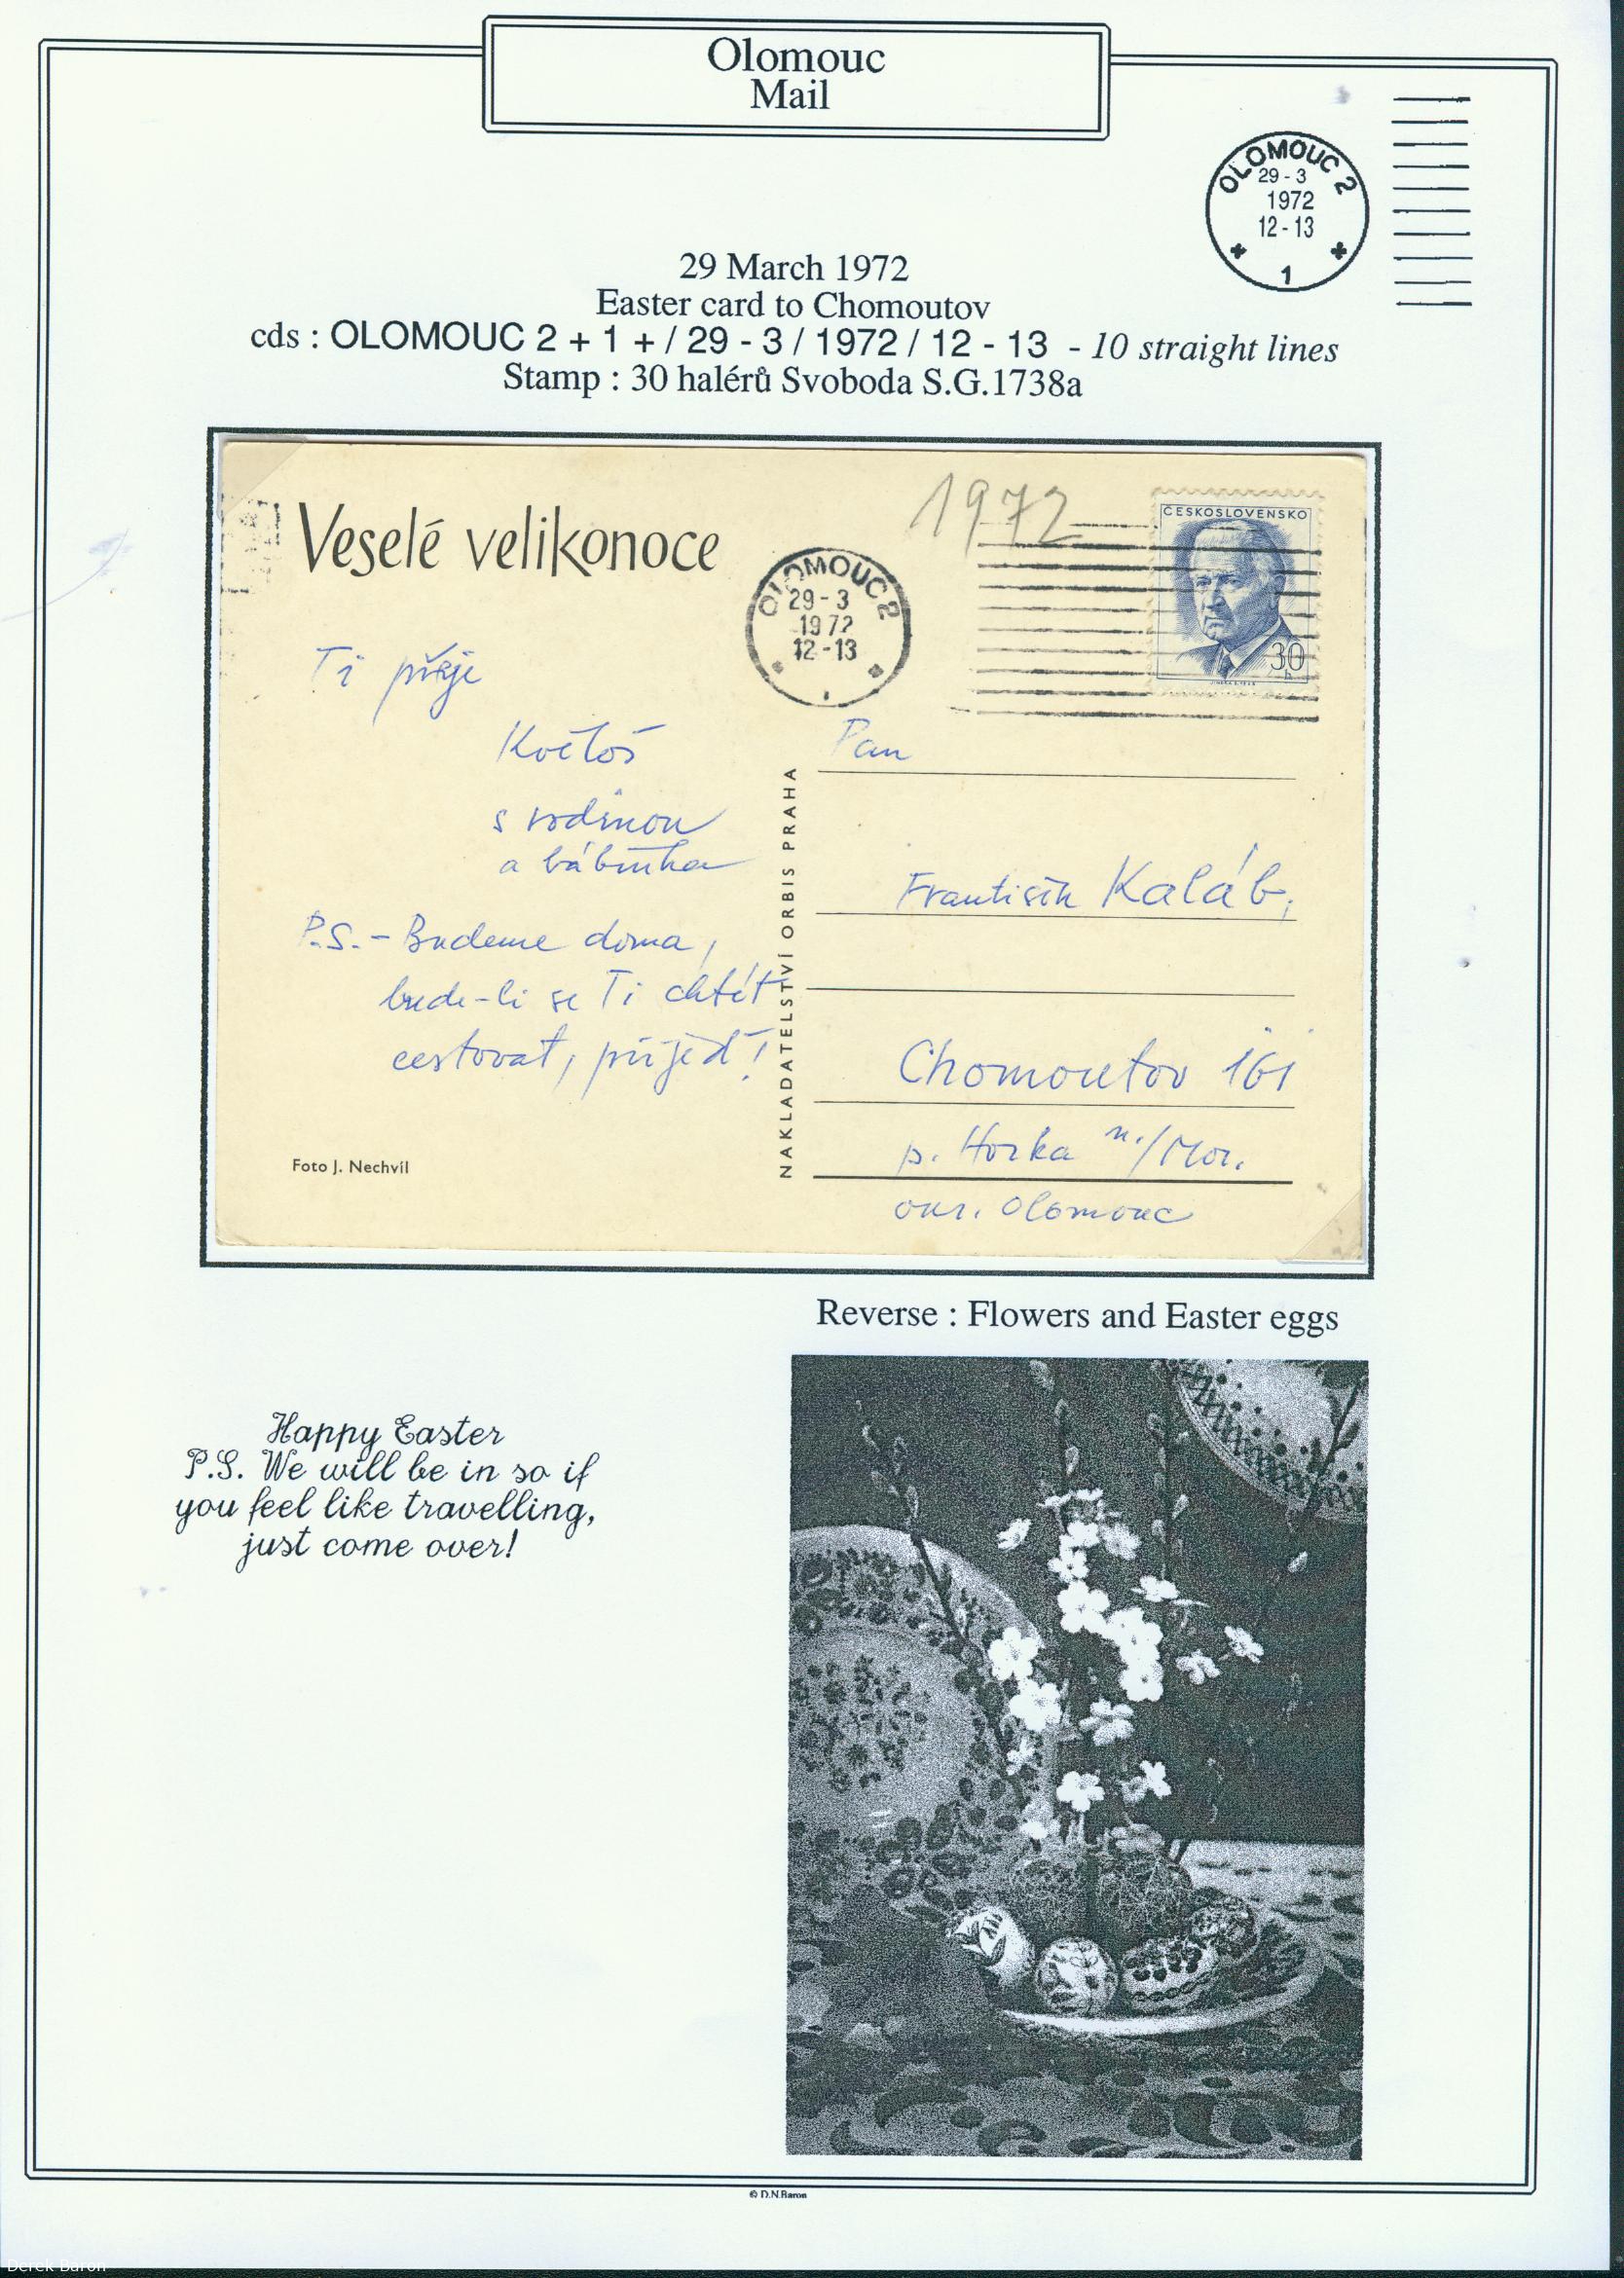 Olomouc
Mail
OLOMOUC 2
29 - 3
1972
12 - 13
1
29 March 1972
Easter card to Chomoutov
cds : OLOMOUC 2 + 1 + / 29 - 3 / 1972 / 12 - 13 - 10 straight lines
Stamp : 30 halérů Svoboda S.G.1738a
1972
ČESKOSLOVENSKO
30
h
Veselé velikonoce
OLOMOUC 2
29 - 3
1972
12 - 13
Ti přeje
Květoš
s rodinou
a babička
P.S. - Budeme doma,
bude-li se Ti chtít
cestovat, přijeď!
Foto J. Nechvíl
NAKLADATELSTVÍ ORBIS PRAHA
Pan
František Kaláb,
Chomoutov 161
p. Horka n./Mor.
okr. Olomouc
Reverse : Flowers and Easter eggs
Happy Easter
P.S. We will be in so if
you feel like travelling,
just come over!
© D.N.Baron
Derek Baron